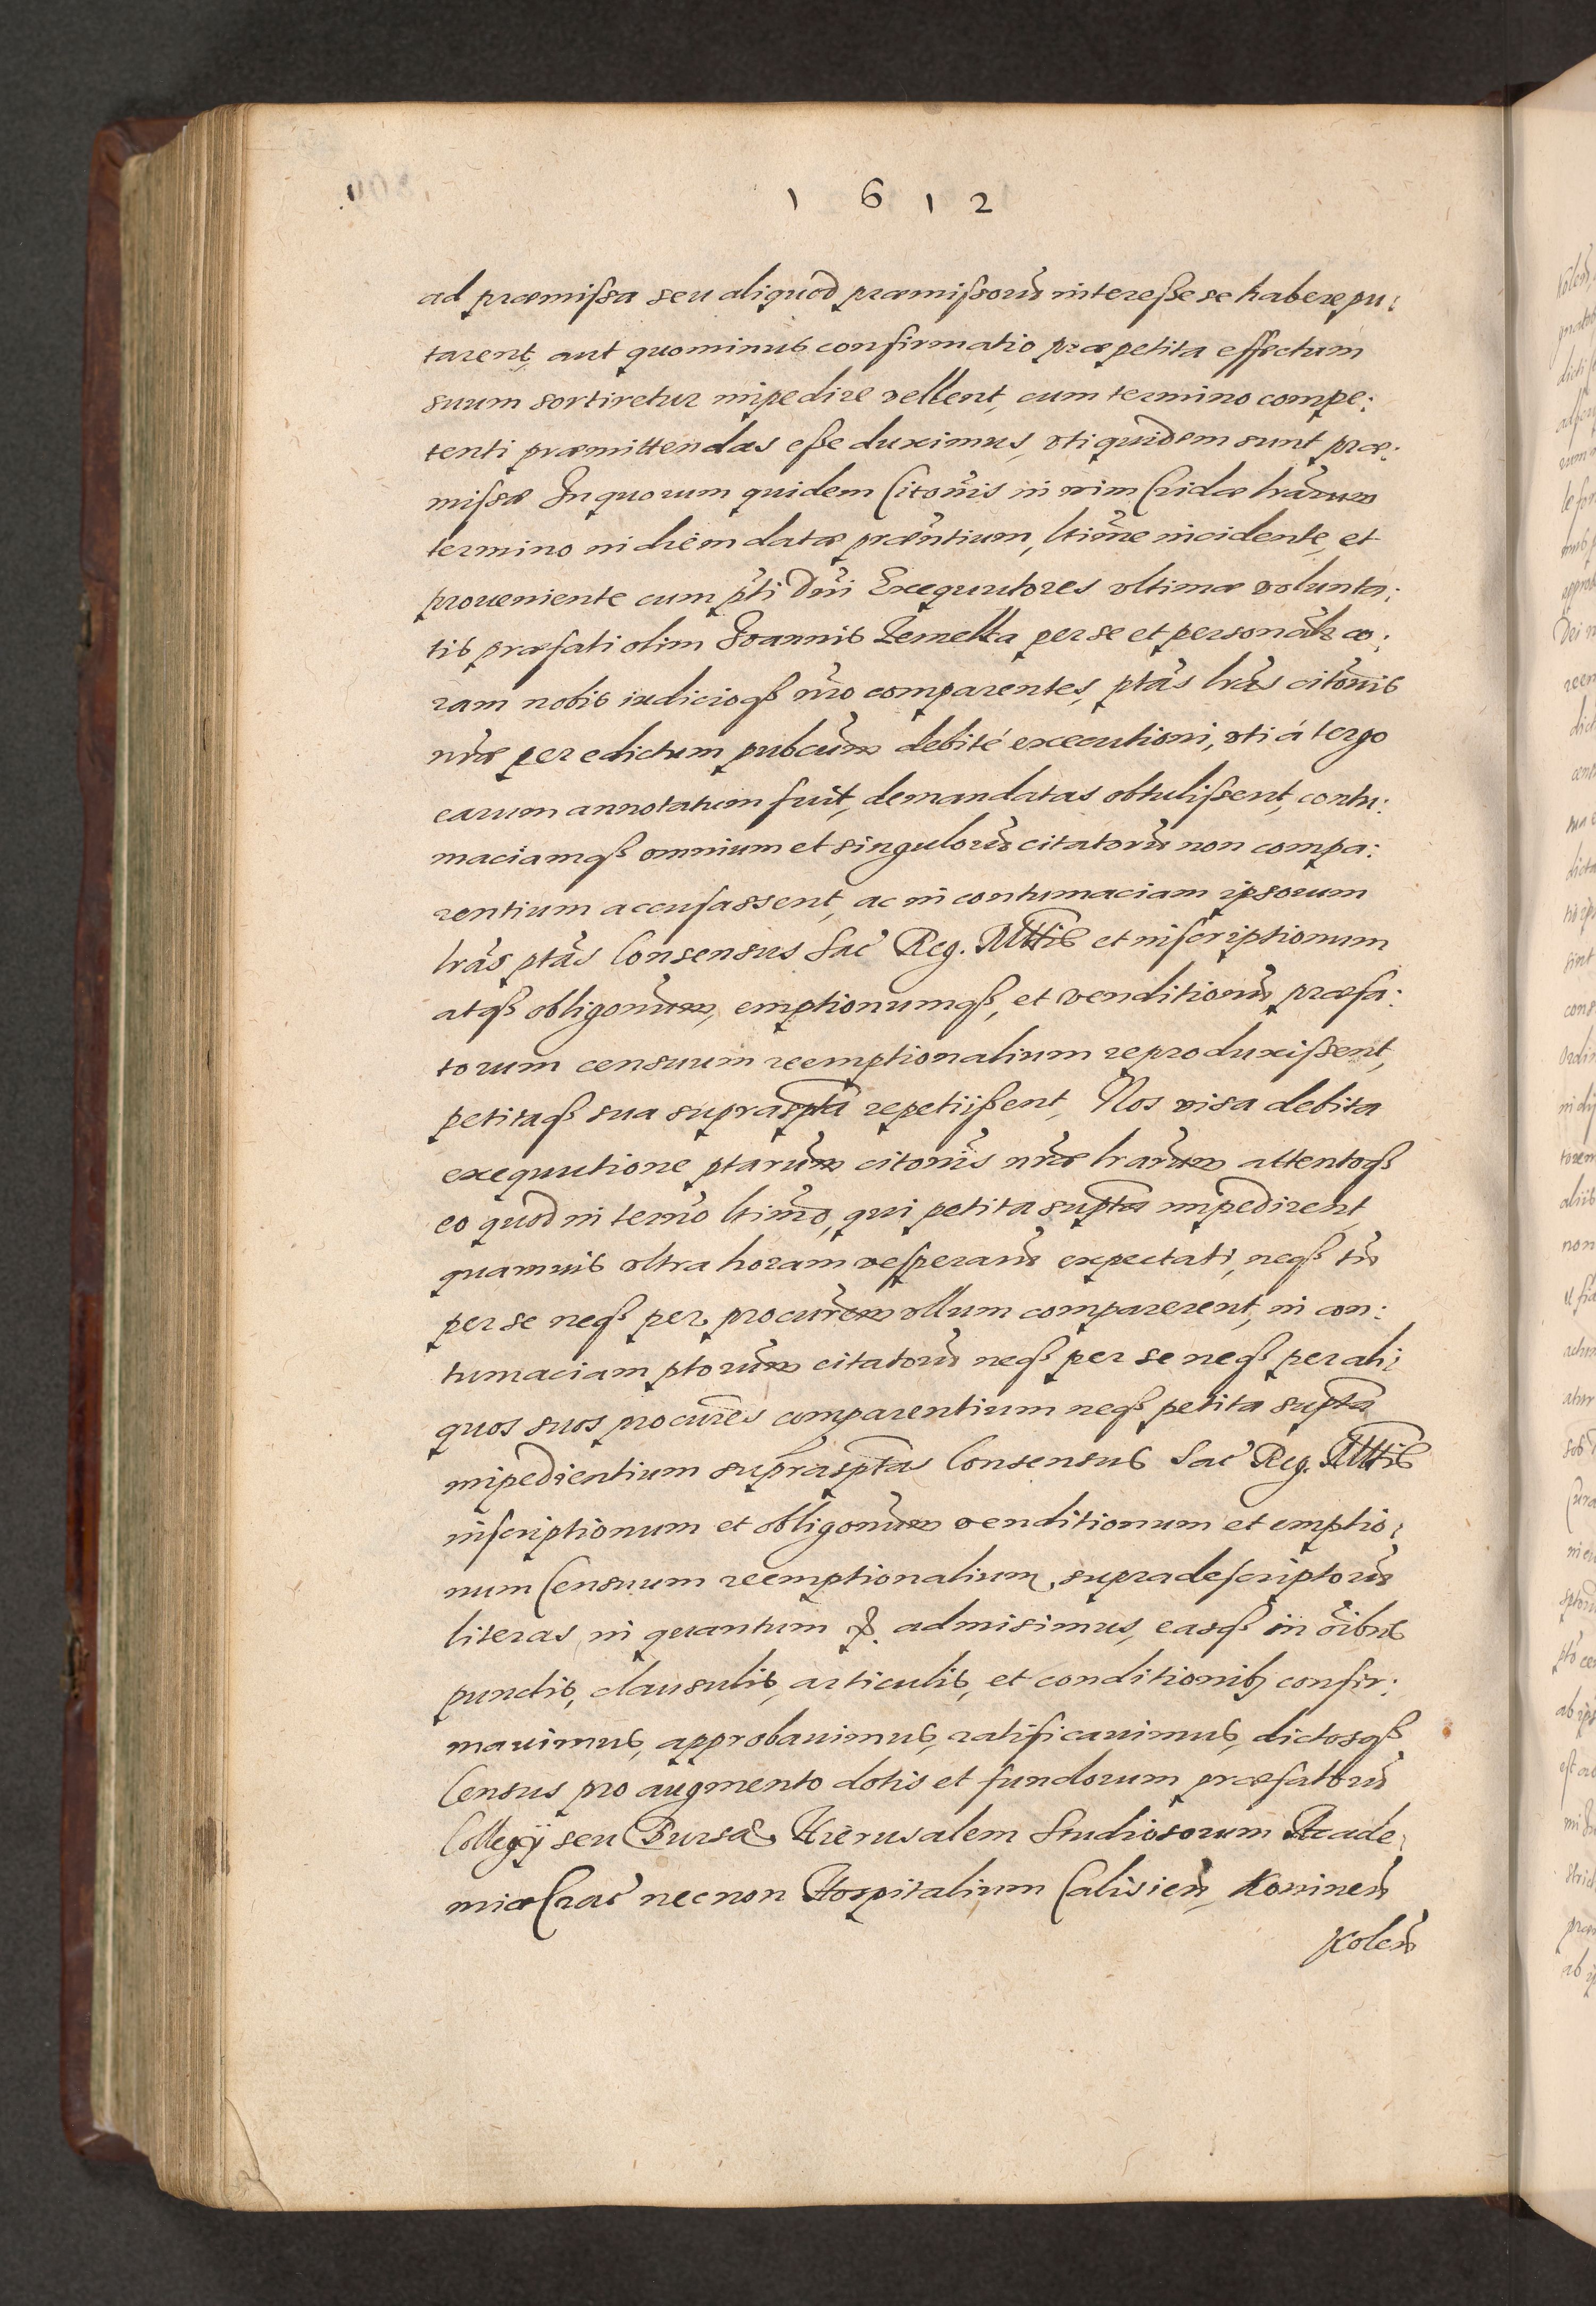 1 6 1 2
ad præmissa seu aliquod præmissorũ interesse se habere pu:
tarent, aut quominus confirmatio præpetita effectum
suum sortiretur impedire vellent, cum termino compe:
tenti præmittendas esse duximus, vti quidem sunt præ:
missæ In quorum quidem Citoñis in vim Cridæ lrarum
termino in diem datæ præñtium, ltime incidente, et
proueniente cum p̃ti Dñi Exequutores vltimæ volunta:
tis præfati olim Joannis Zemelka per se et personalr co:
ram nobis iudicioq̃ nr̃o comparentes, ptas lras citoñis
nr̃æ per edictum pubcum debité executioni, vti á tergo
earum annotatum fuit, demandatas obtulissent, contu:
maciamq̃ omnium et singulorũ citatorũ non compa:
rentium accusassent, ac in contumaciam ipsorum
lras ptas Consensus Sac Reg. Mttis et inscriptionum
atq̃ obligonum, emptionumq̃, et venditionũ præfa:
torum censuum reemptionalium reproduxissent,
petitaq̃ sua supraspta repetiissent, Nos visa debita
exequutione ptarum citoñis nr̃æ lrarum attentoq̃
eo quod in termo ltimo, qui petita supta impedirent
quamuis vltra horam vesperarũ expectati, neq̃ tñ
per se neq̃ per procurem vllum comparerent, in con:
tumaciam ptorum citatorũ neq̃ per se neq̃ per ali:
quos suos procures comparentium neq̃ petita supta
impedientium supraspta Consensus Sac Reg. Mttis
inscriptionum et obligonum venditionum et emptio:
num Censuum reemptionalium, supradescriptorũ
literas, in quantum &. admisimus, easq̃ in oĩbus
punctis, clausulis, articulis, et conditionib9 confir:
mauimus, approbauimus, ratificauimus, dictosq̃
Census pro augmento dotis et fundorum præfatorũ
Collegÿ seu Bursæ Hierusalem Studiosorum Acade:
miæ Crac necnon Hospitalium Calisien, Koninen
Kolen